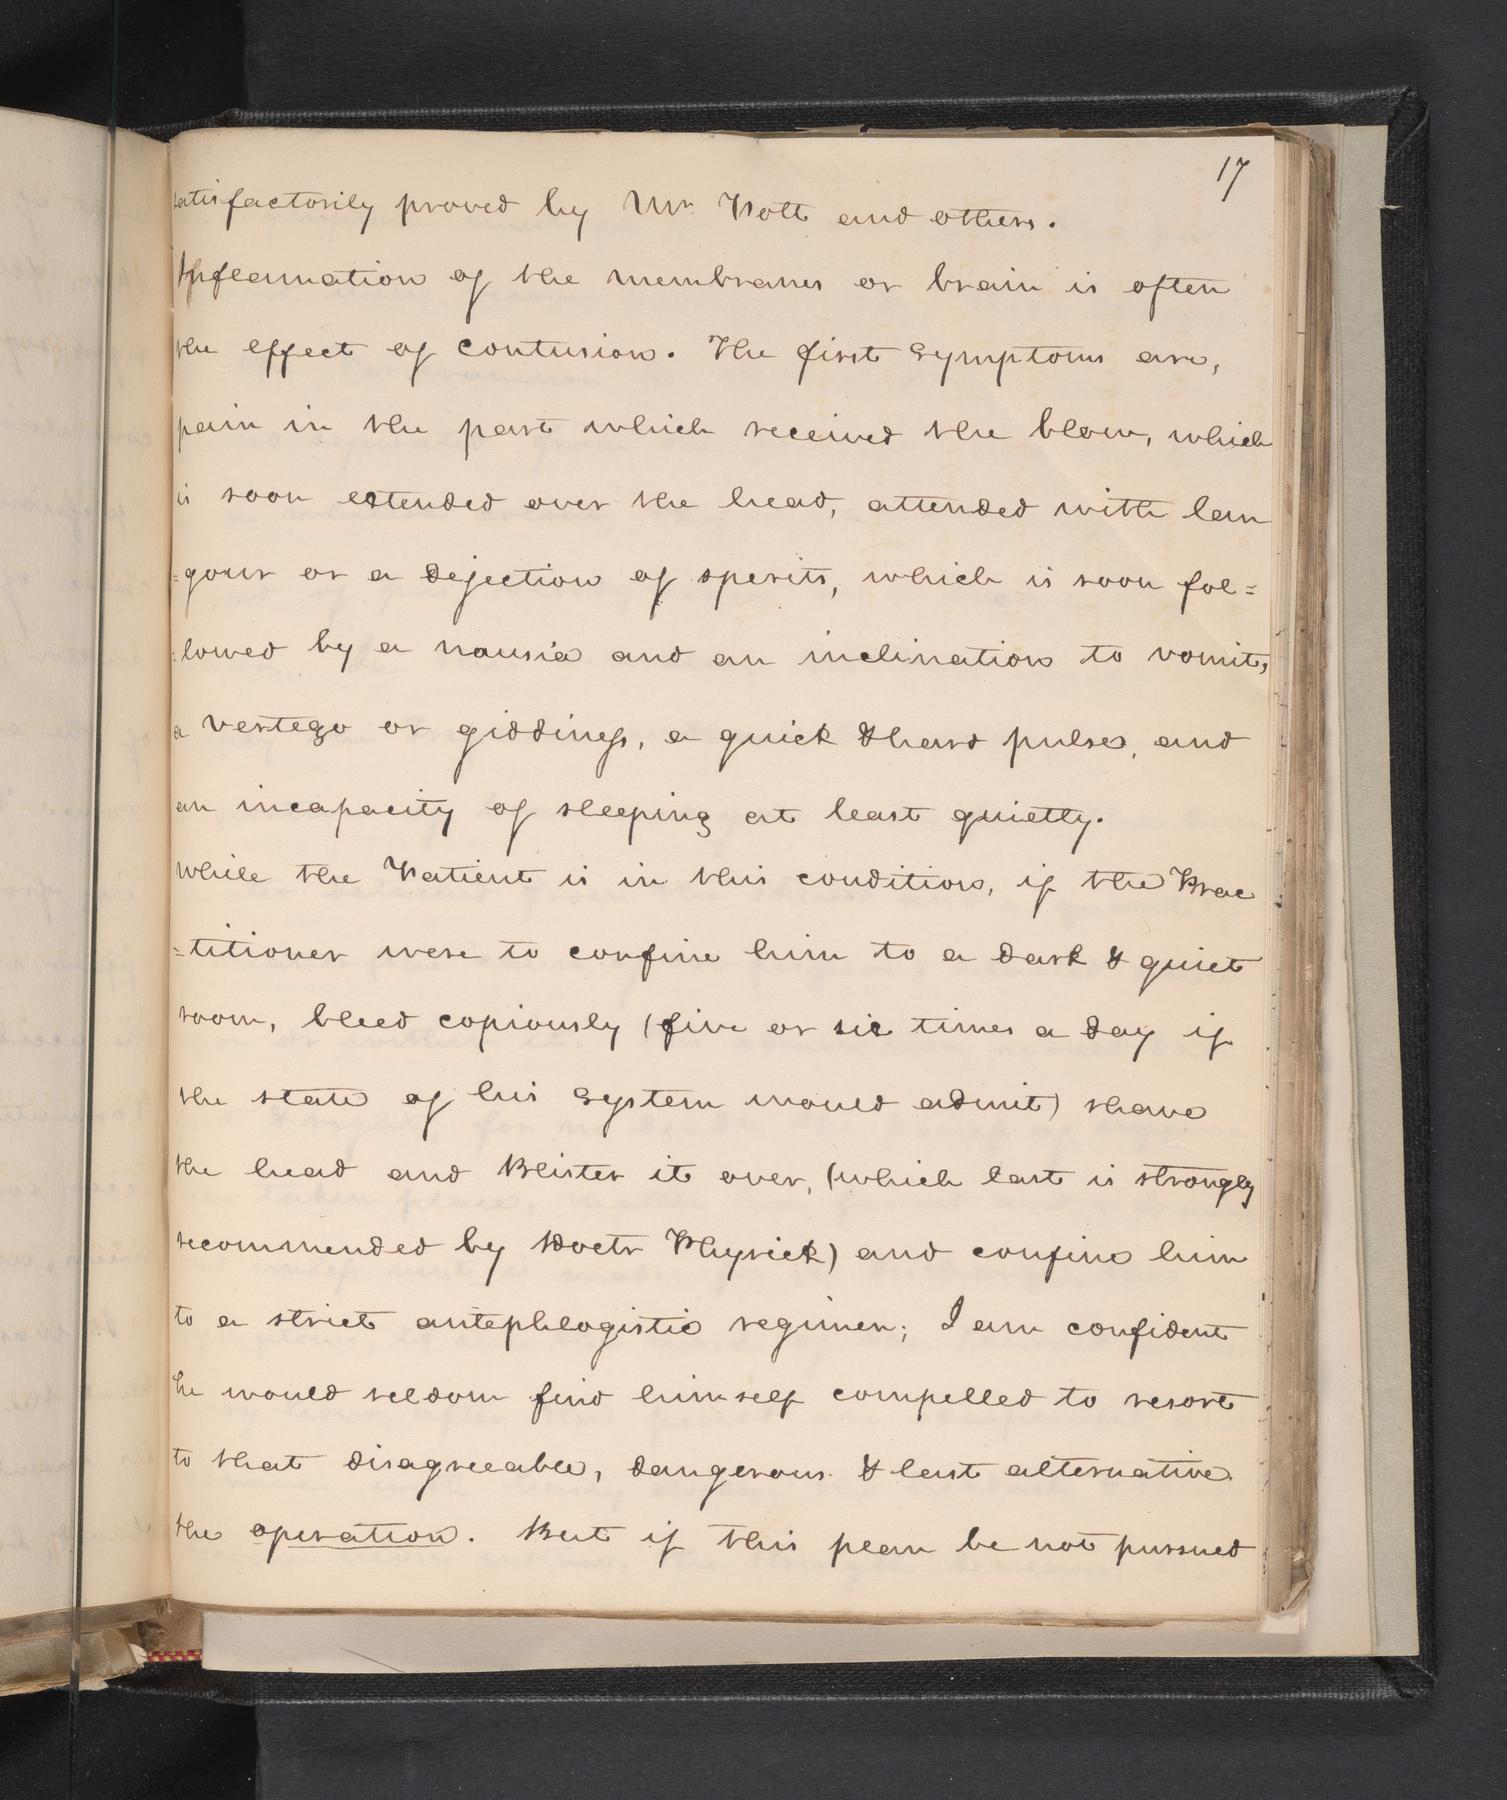 17
satisfactorily proved by Mr. Pott and others.
Inflamation of the membranes or brain is often
the effect of contusion. The first symptoms are,
pain in the part which received the blow, which
is soon extended over the head, attended with lan
=gour or a dejection of sperits, which is soon fol=
=lowed by a nausia and an inclination to vomit,
a vertego or giddiness, a quick & hard pulse, and
an incapacity of sleeping at least quietly.
while the Patient is in this condition, if the Prac
=titioner were to confine him to a dark & quiet
room, bleed copiously (five or six times a day if
the state of his system would admit) shave
the head and Blister it over, (which last is strongly
recommended by Doctr Physick) and confine him
to a strict antephlogistic regimen; I am confident
he would seldom find himself compelled to resort
to that disagreeable, dangerous & last alternative
the operation. But if this plan be not pursued